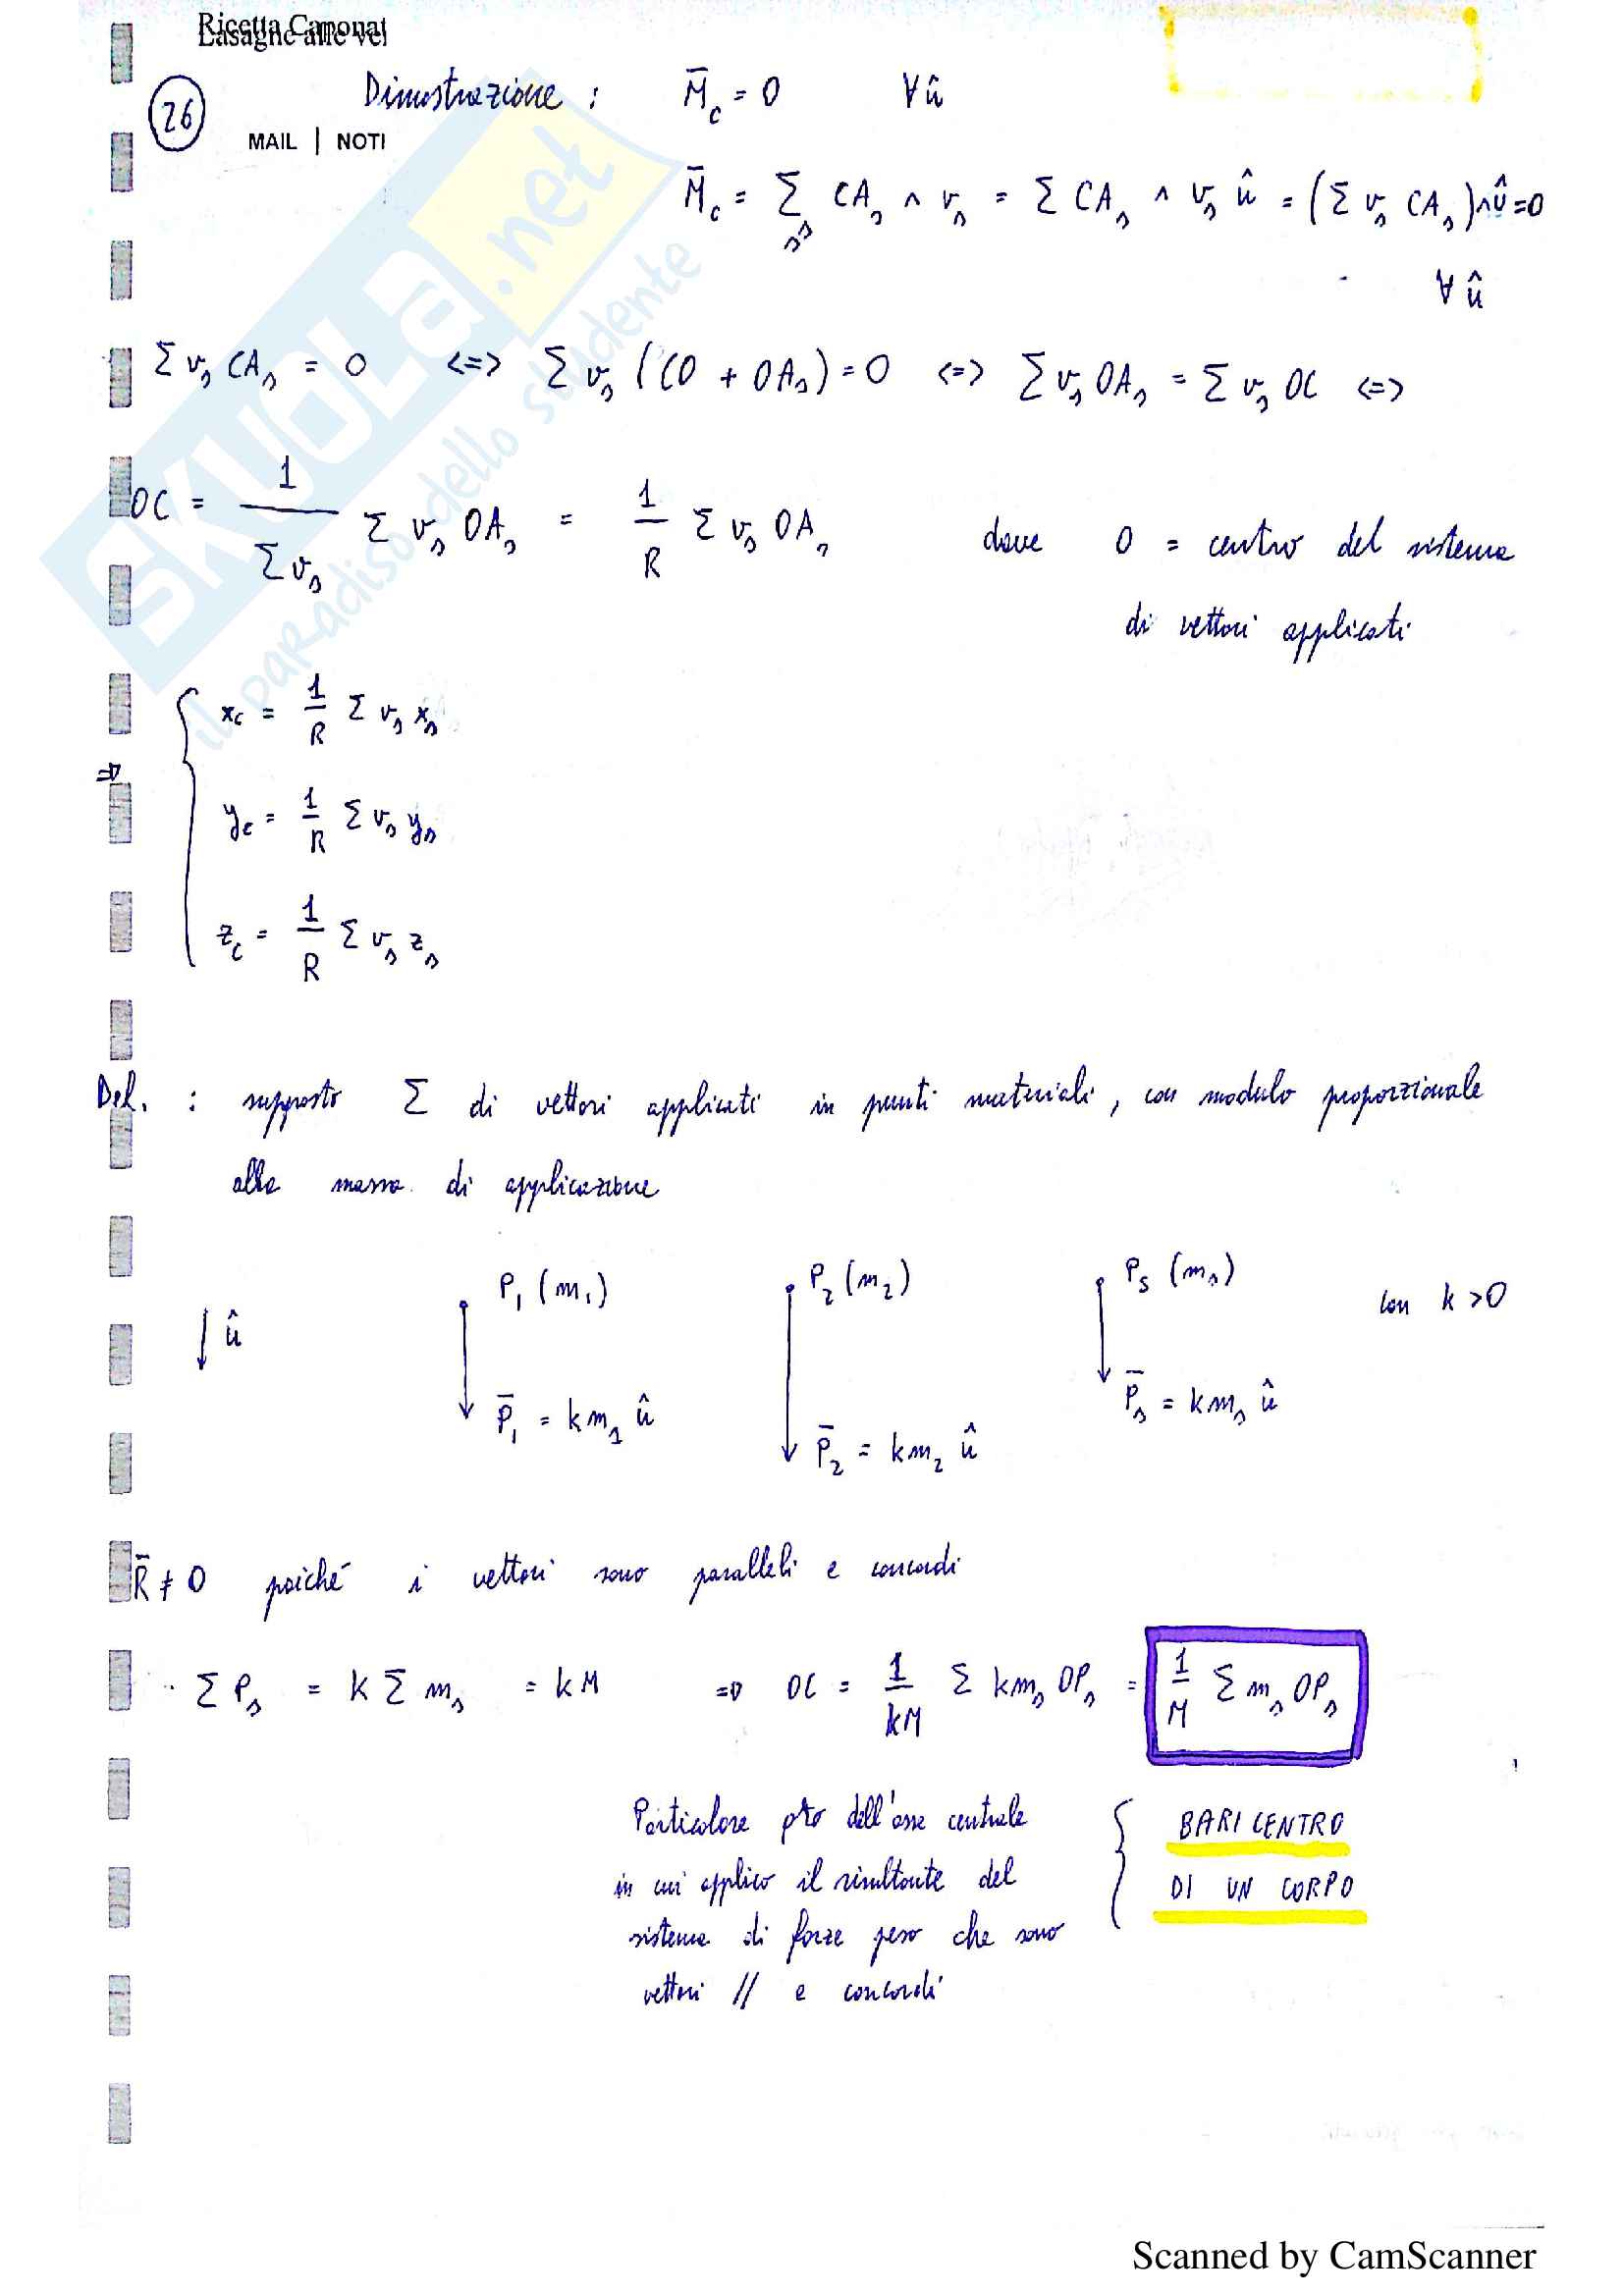 Ricetta Caponat
Lasagne alle vel
26
Dimostrazione : M̄c = 0 ∀ û
MAIL | NOTI
M̄c = Σs CAs ∧ vs = Σ CAs ∧ vs û = (Σ vs CAs) ∧ û = 0
∀ û
Σ vs CAs = 0 <=> Σ vs (CO + OAs) = 0 <=> Σ vs OAs = Σ vs OC <=>
OC = 1/Σvs Σ vs OAs = 1/R Σ vs OAs dove O = centro del sistema
di vettori applicati
=> { xc = 1/R Σ vs xs
yc = 1/R Σ vs ys
zc = 1/R Σ vs zs
: supposto Σ di vettori applicati in punti materiali, con modulo proporzionale
alla massa di applicazione
û P1 (m1) P2 (m2) Ps (ms) con k > 0
P̄1 = km1 û P̄2 = km2 û P̄s = kms û
R̄ ≠ 0 poiché i vettori sono paralleli e concordi
Σ Ps = k Σ ms = kM => OC = 1/kM Σ kms OPs = 1/M Σ ms OPs
Particolare pto dell'asse centrale
in cui applico il risultante del
sistema di forze peso che sono
vettori // e concordi
BARICENTRO
DI UN CORPO
SKUOLA.net
il paradiso dello studente
Scanned by CamScanner